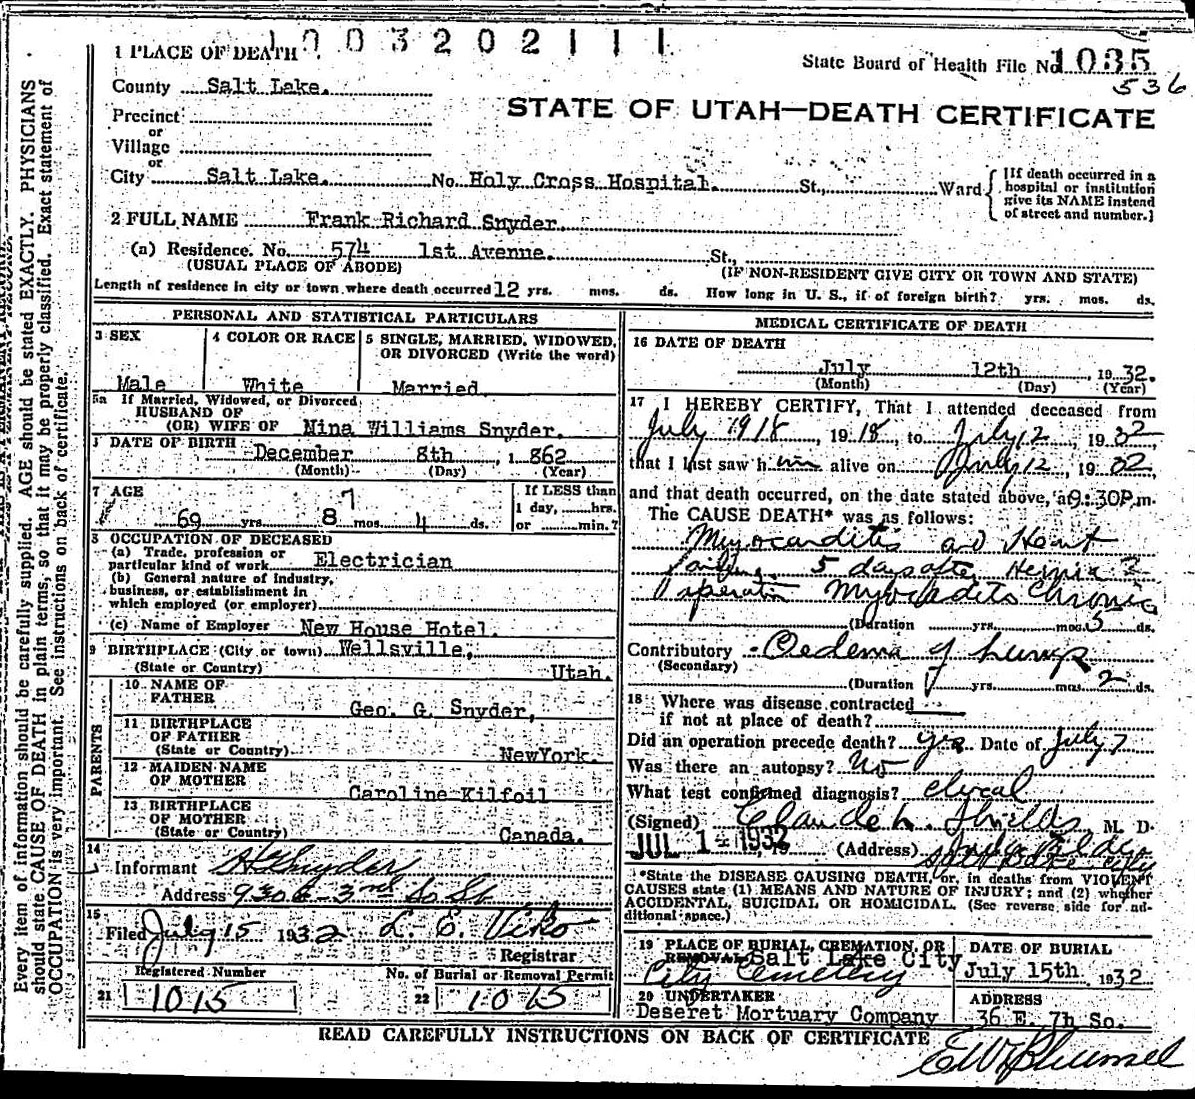 1003202111
1 PLACE OF DEATH
State Board of Health File No. 1035
536
County Salt Lake.
STATE OF UTAH—DEATH CERTIFICATE
Precinct
or
Village
or
City Salt Lake. No. Holy Cross Hospital. St., Ward
[If death occurred in a hospital or institution give its NAME instead of street and number.]
2 FULL NAME Frank Richard Snyder.
(a) Residence. No. 574 1st Avenue. St.,
(USUAL PLACE OF ABODE) (IF NON-RESIDENT GIVE CITY OR TOWN AND STATE)
Length of residence in city or town where death occurred 12 yrs. mos. ds. How long in U. S., if of foreign birth? yrs. mos. ds.
PERSONAL AND STATISTICAL PARTICULARS
3 SEX
Male
4 COLOR OR RACE
White
5 SINGLE, MARRIED, WIDOWED, OR DIVORCED (Write the word)
Married
5a If Married, Widowed, or Divorced
HUSBAND OF
(OR) WIFE OF Nina Williams Snyder.
DATE OF BIRTH
December 8th, 1862
(Month) (Day) (Year)
7 AGE
7
69 yrs. 8 mos. 4 ds.
If LESS than
1 day, hrs.
or min.?
OCCUPATION OF DECEASED
(a) Trade, profession or
particular kind of work Electrician
(b) General nature of industry,
business, or establishment in
which employed (or employer)
(c) Name of Employer New House Hotel.
9 BIRTHPLACE (City or town) Wellsville,
(State or Country) Utah.
PARENTS
10 NAME OF
FATHER Geo. G. Snyder,
11 BIRTHPLACE
OF FATHER
(State or Country) NewYork.
12 MAIDEN NAME
OF MOTHER Caroline Kilfoil
13 BIRTHPLACE
OF MOTHER
(State or Country) Canada.
14
Informant Snyder
Address 3rd So St
15
Filed July 15 1932 L. E. Viko
Registrar
Registered Number
21 1015
No. of Burial or Removal Permit
22 1015
MEDICAL CERTIFICATE OF DEATH
16 DATE OF DEATH
July 12th, 1932.
(Month) (Day) (Year)
17 I HEREBY CERTIFY, That I attended deceased from
July 1918, 1918, to July 12, 1932
that I last saw him alive on July 12, 1932,
and that death occurred, on the date stated above, at 9:30P.m.
The CAUSE DEATH* was as follows:
Myocarditis and Heart
5 days after Hernia
Operation Myocarditis Chronic
(Duration yrs. mos. 5 ds.
Contributory Oedema of Lungs
(Secondary)
(Duration yrs. mos. 2 ds.
18 Where was disease contracted
if not at place of death?
Did an operation precede death? Yes Date of July 7
Was there an autopsy? No
What test confirmed diagnosis?
(Signed) Claude L. Shields M. D.
JUL 1 1932, 19 (Address) Salt Lake City
*State the DISEASE CAUSING DEATH, or, in deaths from VIOLENT
CAUSES state (1) MEANS AND NATURE OF INJURY; and (2) whether
ACCIDENTAL, SUICIDAL OR HOMICIDAL. (See reverse side for ad-
ditional space.)
19 PLACE OF BURIAL, CREMATION, OR
REMOVAL Salt Lake City
City Cemetery
DATE OF BURIAL
July 15th. 1932
20 UNDERTAKER
Deseret Mortuary Company
ADDRESS
36 E. 7h So.
READ CAREFULLY INSTRUCTIONS ON BACK OF CERTIFICATE
Every item of information should be carefully supplied. AGE should be stated EXACTLY. PHYSICIANS
should state CAUSE OF DEATH in plain terms, so that it may be properly classified. Exact statement of
OCCUPATION is very important. See instructions on back of certificate.